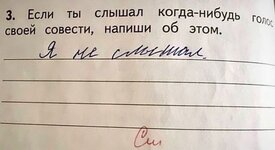 3. Если ты слышал когда-нибудь голос
своей совести, напиши об этом.
Я не слышал.
См